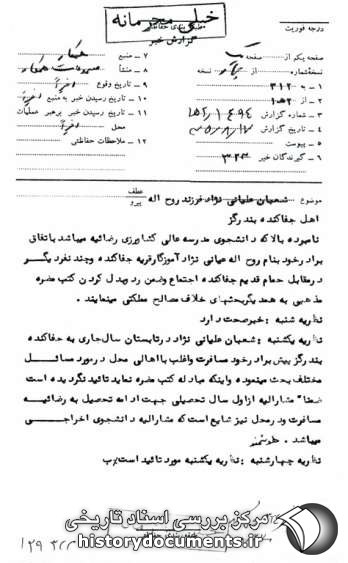 خیلی محرمانه
درجه فوریت
گزارش خبر
صفحه یکم از صفحه
نسخه شماره از نسخه
۱ - به ۳۱۲
۲ - از
۳ - شماره گزارش
۴ - تاریخ گزارش
۵ - پیوست
۶ - گیرندگان خبر ۳۲۳
۷ - منبع همکار
۸ - منشأ
۹ - تاریخ وقوع اخیراً
۱۰ - تاریخ رسیدن خبر به منبع اخیراً
۱۱ - تاریخ رسیدن خبر برهبر عملیات
محل
۱۲ - ملاحظات حفاظتی
موضوع شعبان علیانی نژاد فرزند روح اله
عطف
پیرو
اهل جفاکنده بندرگز
نامبرده بالا که دانشجوی مدرسه عالی کشاورزی رضائیه میباشد باتفاق
برادر خود بنام روح اله عیانی نژاد آموزگار قریه جفاکنده وچند نفر دیگر
در مقابل حمام قدیم جفاکنده اجتماع وضمن رد وبدل کردن کتب مضره
مذهبی به همدیگر بحثهای خلاف مصالح مملکتی مینمایند .
نظریه شنبه : خبر صحت دارد
نظریه یکشنبه : شعبان علیانی نژاد در تابستان سال جاری به جفاکنده
بندرگز پیش برادر خود مسافرت واغلب با اهالی محل در مورد مسائل
مختلف بحث مینموده و اینکه مبادله کتب مضره نماید تائید نگردیده است
ضمناً مشارالیه از اول سال تحصیلی جهت ادامه تحصیل به رضائیه
مسافرت ودر محل نیز شایع است که مشارالیه دانشجوی اخراجی
میباشد .
نظریه چهارشنبه : نظریه یکشنبه مورد تائید است
مرکز بررسی اسناد تاریخی
historydocuments.ir